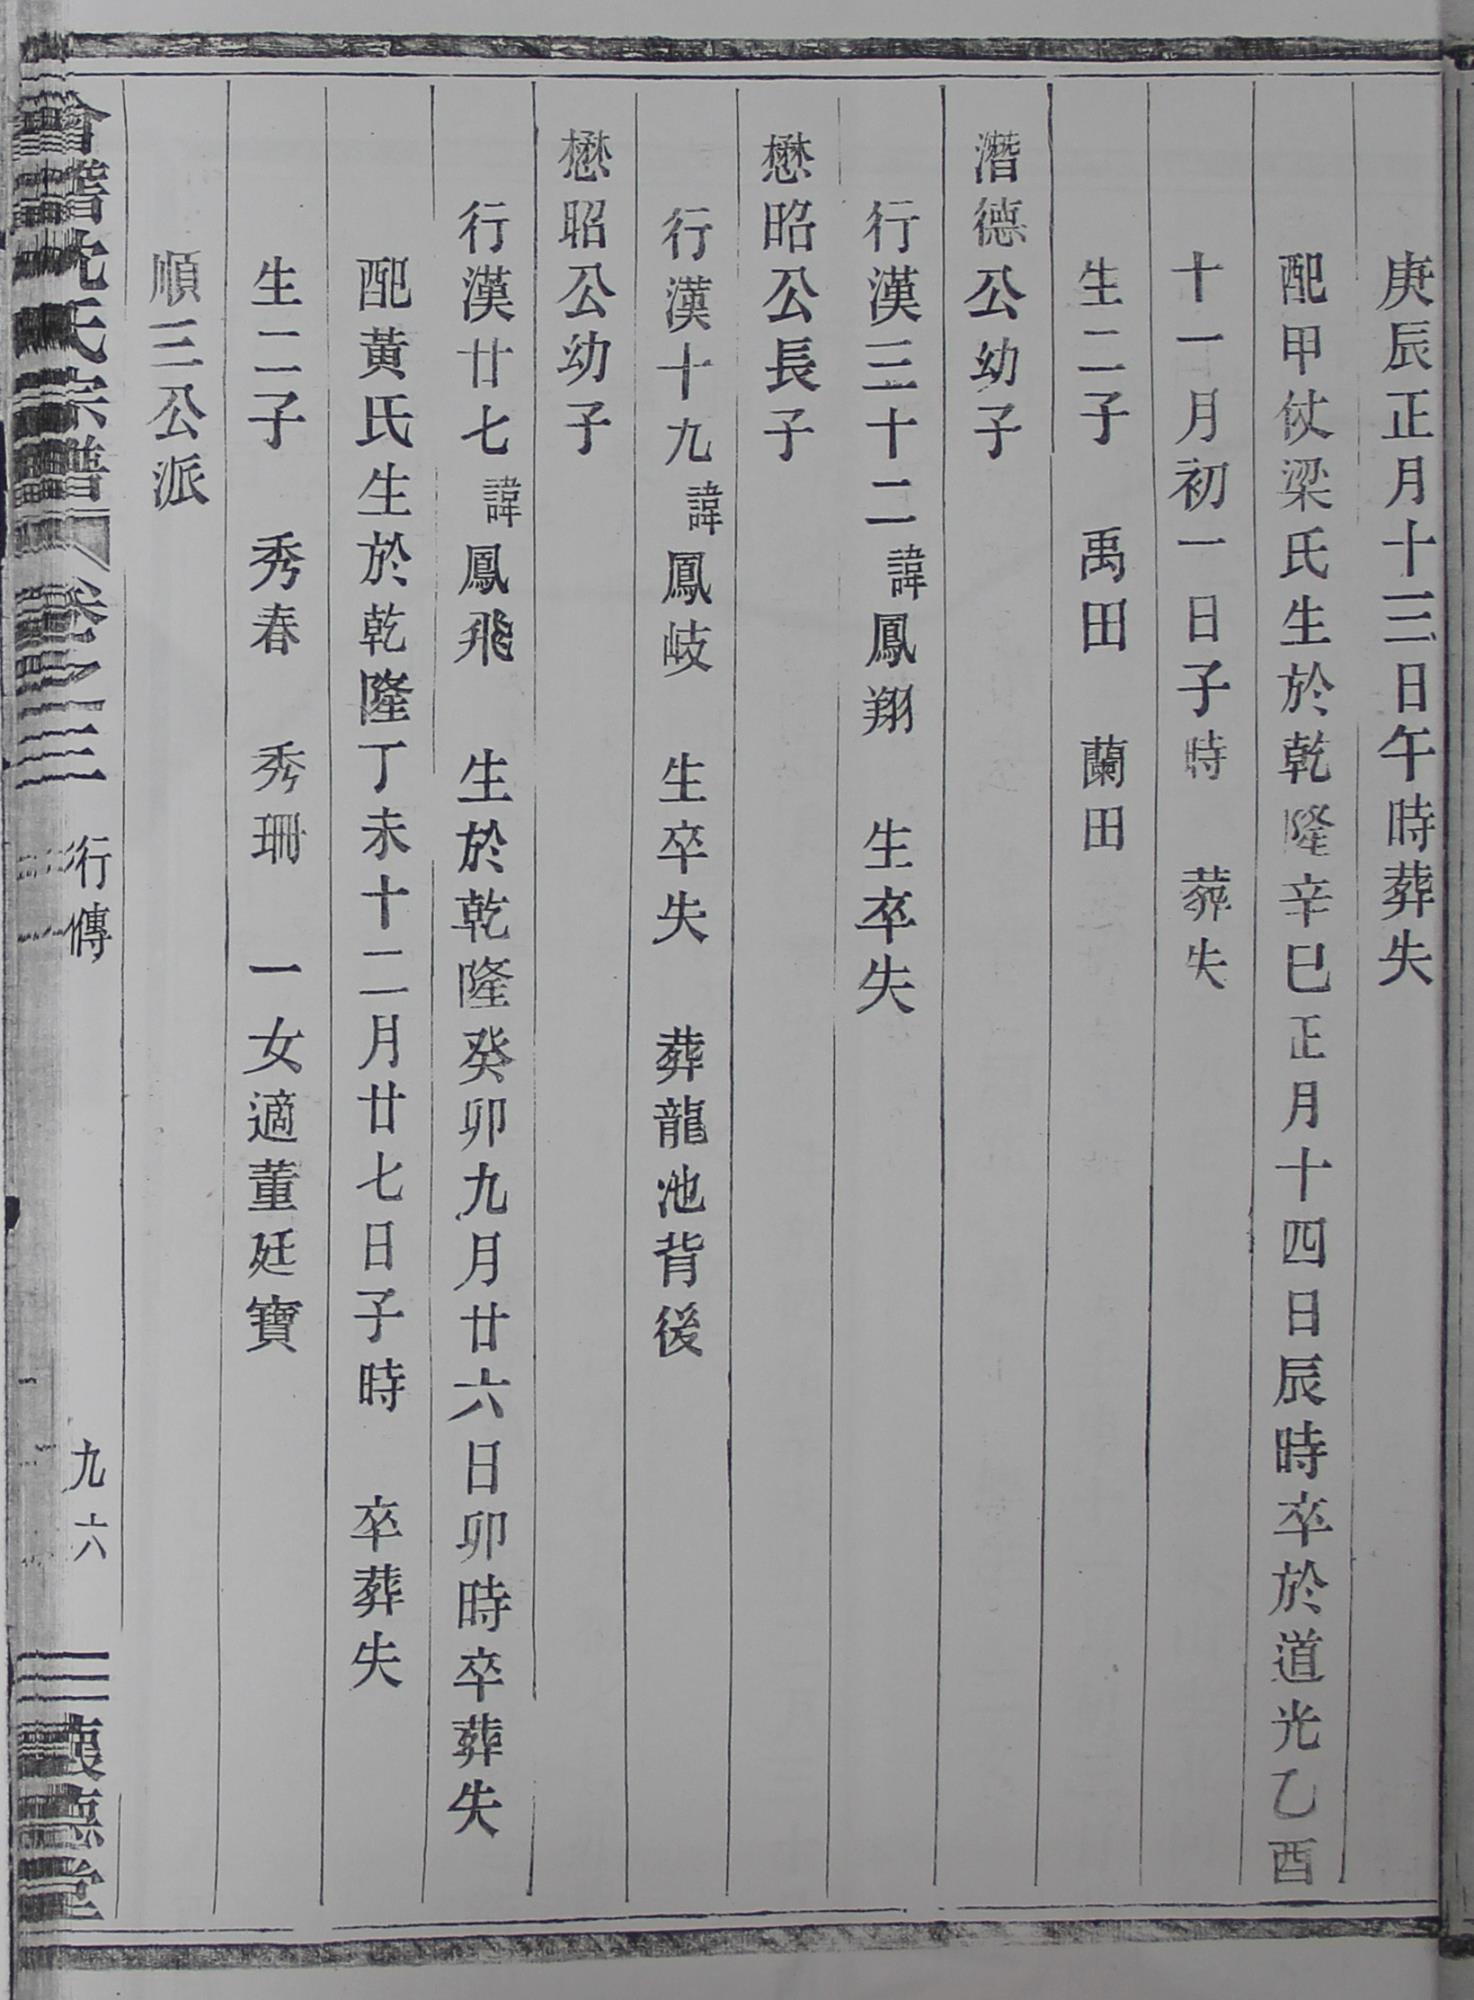 庚辰正月十三日午時葬失
配甲仗梁氏生於乾隆辛巳正月十四日辰時卒於道光乙酉
十一月初一日子時　葬失
生二子　禹田　蘭田
潛德公幼子
行漢三十二諱鳳翔　生卒失
懋昭公長子
行漢十九諱鳳岐　生卒失　葬龍池背後
懋昭公幼子
行漢廿七諱鳳飛　生於乾隆癸卯九月廿六日卯時卒葬失
配黃氏生於乾隆丁未十二月廿七日子時　卒葬失
生二子　秀春　秀珊　一女適董廷寶
順三公派
會稽沈氏宗譜　卷之三　行傳　九六　德堂